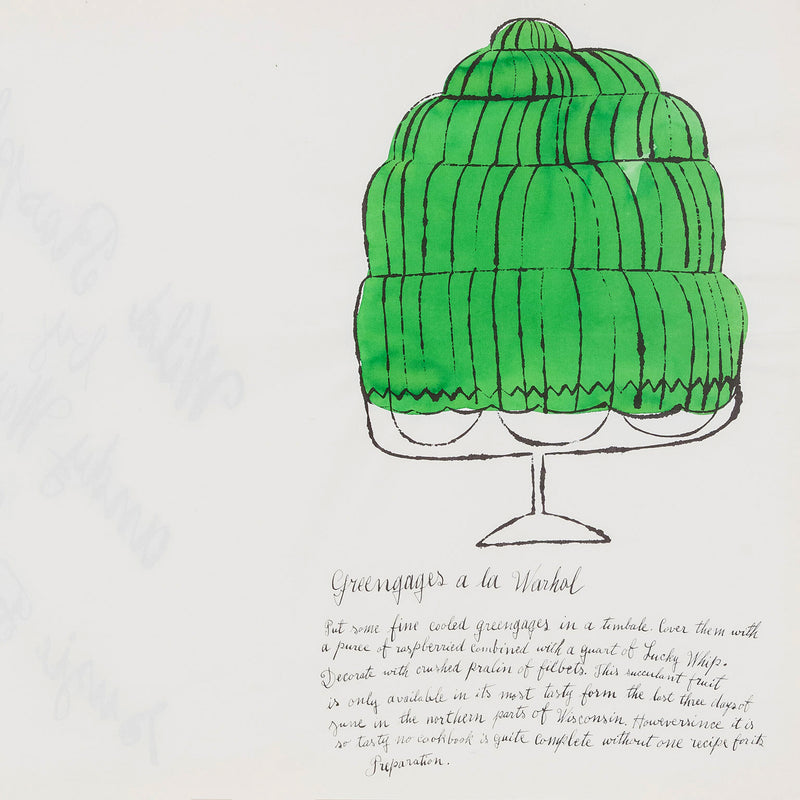 Greengages a la Warhol
Put some fine cooled greengages in a timbale. Cover them with
a puree of raspberried combined with a quart of Lucky Whip.
Decorate with crushed pralin of filbets. This succulant fruit
is only available in its most tasty form the last three days of
june in the northern parts of Wisconsin. Howeversince it is
so tasty no cookbook is quite complete without one recipe for its
Preparation.